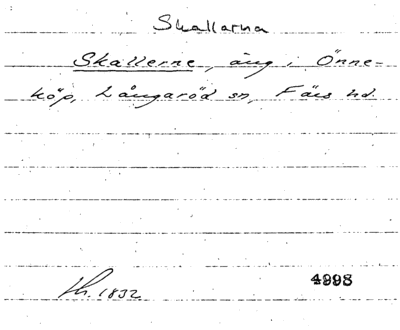 Skallarna
Skallerne, äng i Önne-
köp, Långaröd sn, Färs hd.
Lh. 1832
4998